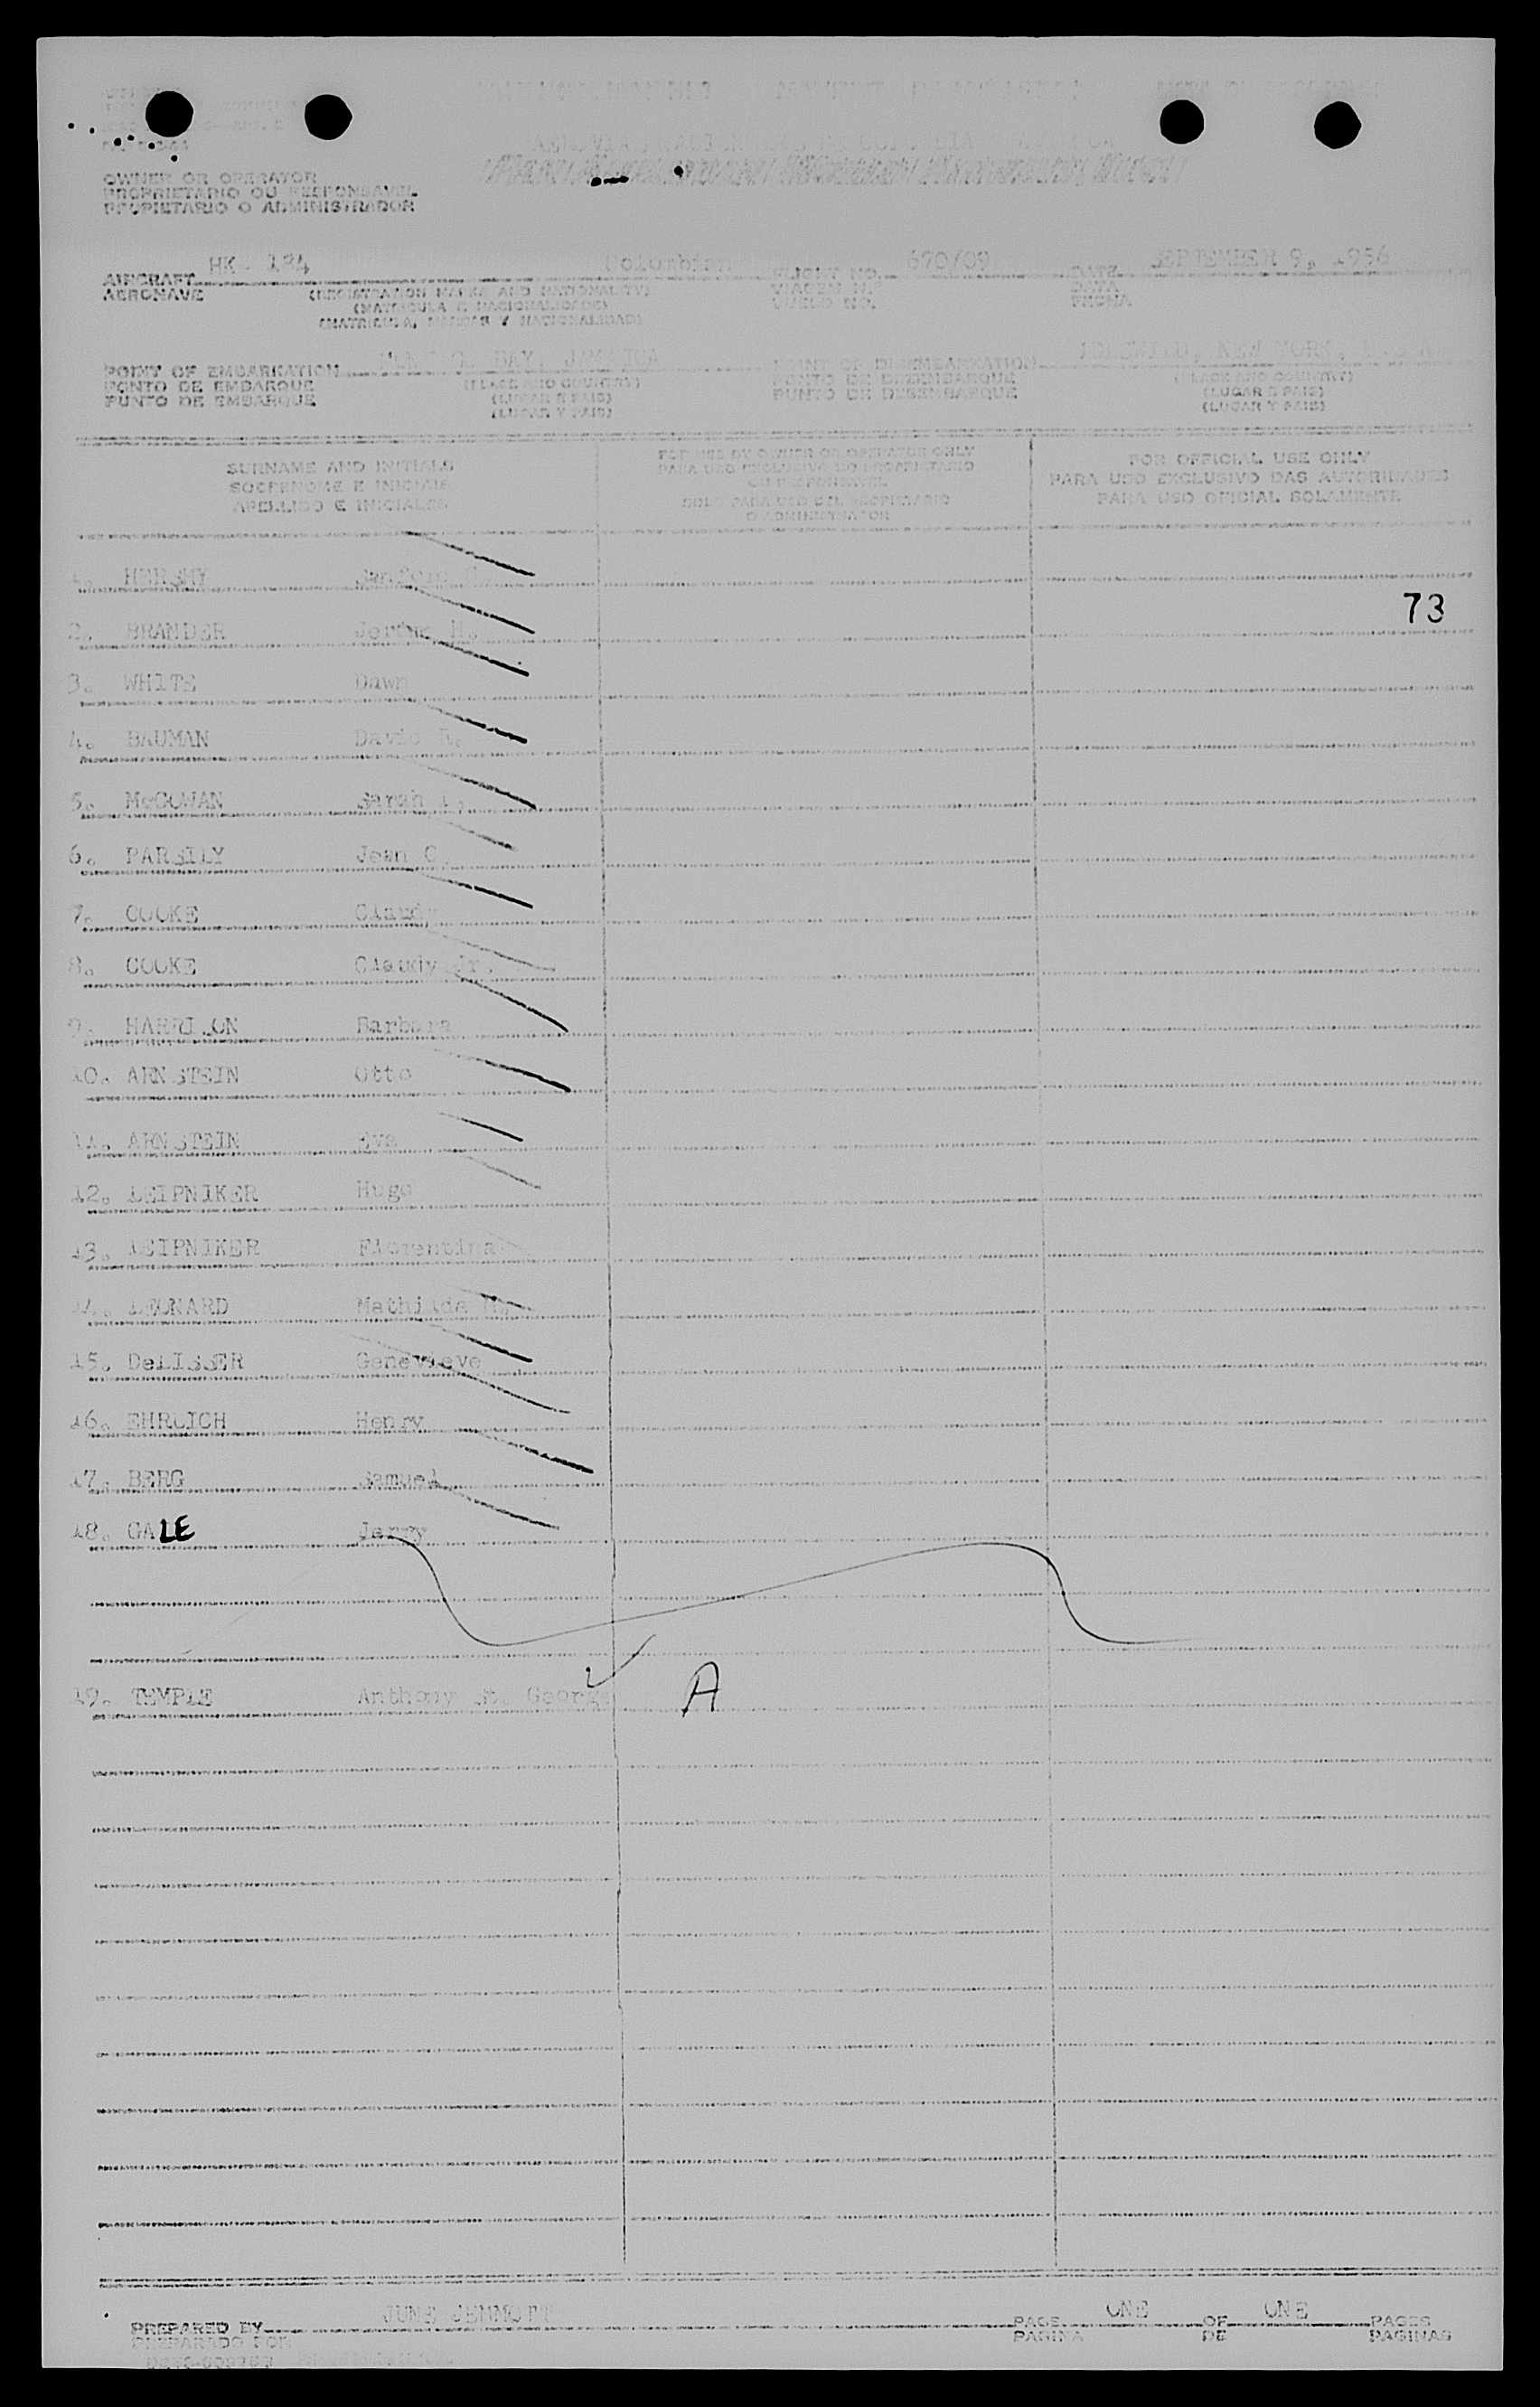 OWNER OR OPERATOR
PROPRIETARIO OU RESPONSAVEL
PROPIETARIO O ADMINISTRADOR
AIRCRAFT HK- 124 Columbian FLIGHT NO. 670/09 DATE SEPTEMBER 9, 1956
AERONAVE (REGISTRATION MARKS AND NATIONALITY) VIAGEM N.º DATA
(MATRICULA E NACIONALIDADE) VUELO NO. FECHA
(MATRICULA, MARCAS Y NACIONALIDAD)
POINT OF EMBARKATION BAY, JAMAICA POINT OF DISEMBARKATION IDLEWILD, NEW YORK,
PONTO DE EMBARQUE (PLACE AND COUNTRY) PONTO DE DESEMBARQUE (PLACE AND COUNTRY)
PUNTO DE EMBARQUE (LUGAR E PAIS) PUNTO DE DESEMBARQUE (LUGAR E PAIS)
(LUGAR Y PAIS) (LUGAR Y PAIS)
SURNAME AND INITIALS FOR USE BY OWNER OR OPERATOR ONLY FOR OFFICIAL USE ONLY
SOBRENOME E INICIAIS PARA USO EXCLUSIVO DO PROPRIETARIO PARA USO EXCLUSIVO DAS AUTORIDADES
APELLIDO E INICIALES OU RESPONSAVEL PARA USO OFICIAL SOLAMENTE
SOLO PARA USO DEL PROPIETARIO
O ADMINISTRADOR
1. HERSHY
73
2. BRANDER Jerome H.
3. WHITE Dawn
4. BAUMAN David R.
5. McGOWAN Sarah
6. PARSILY Jean C.
7. COOKE Claudy
8. COOKE Claudy Jr.
9. HARRISON Barbara
10. ARNSTEIN Otto
11. ARNSTEIN Eva
12. LEIPNIKER Hugo
13. LEIPNIKER Florentina
14. LEONARD Mathilda M.
15. DeLISSER Genevieve
16. EHRLICH Henry
17. BERG Samuel
18. GALE Jerry
19. TEMPLE Anthony St. George A
PREPARED BY JUNE JEMMOTT PAGE ONE OF ONE PAGES
PREPARADO POR PAGINA DE PAGINAS